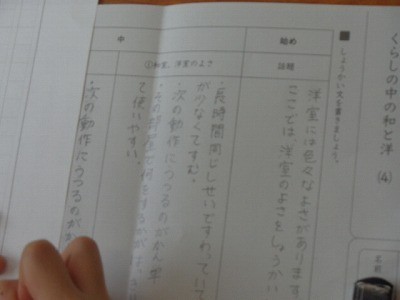 くらしの中の和と洋 (4)
名前
■しょうかい文を書きましょう。
始め
中
話題
①和室、洋室のよさ
洋室には色々なよさがあります
ここでは、洋室のよさをしょうかい
・長時間同じしせいですわっていて
が少なくてすむ。
・次の動作にうつるのがかん単
・その部屋で何をするかが
て使いやすい。
・次の動作にうつるのがか